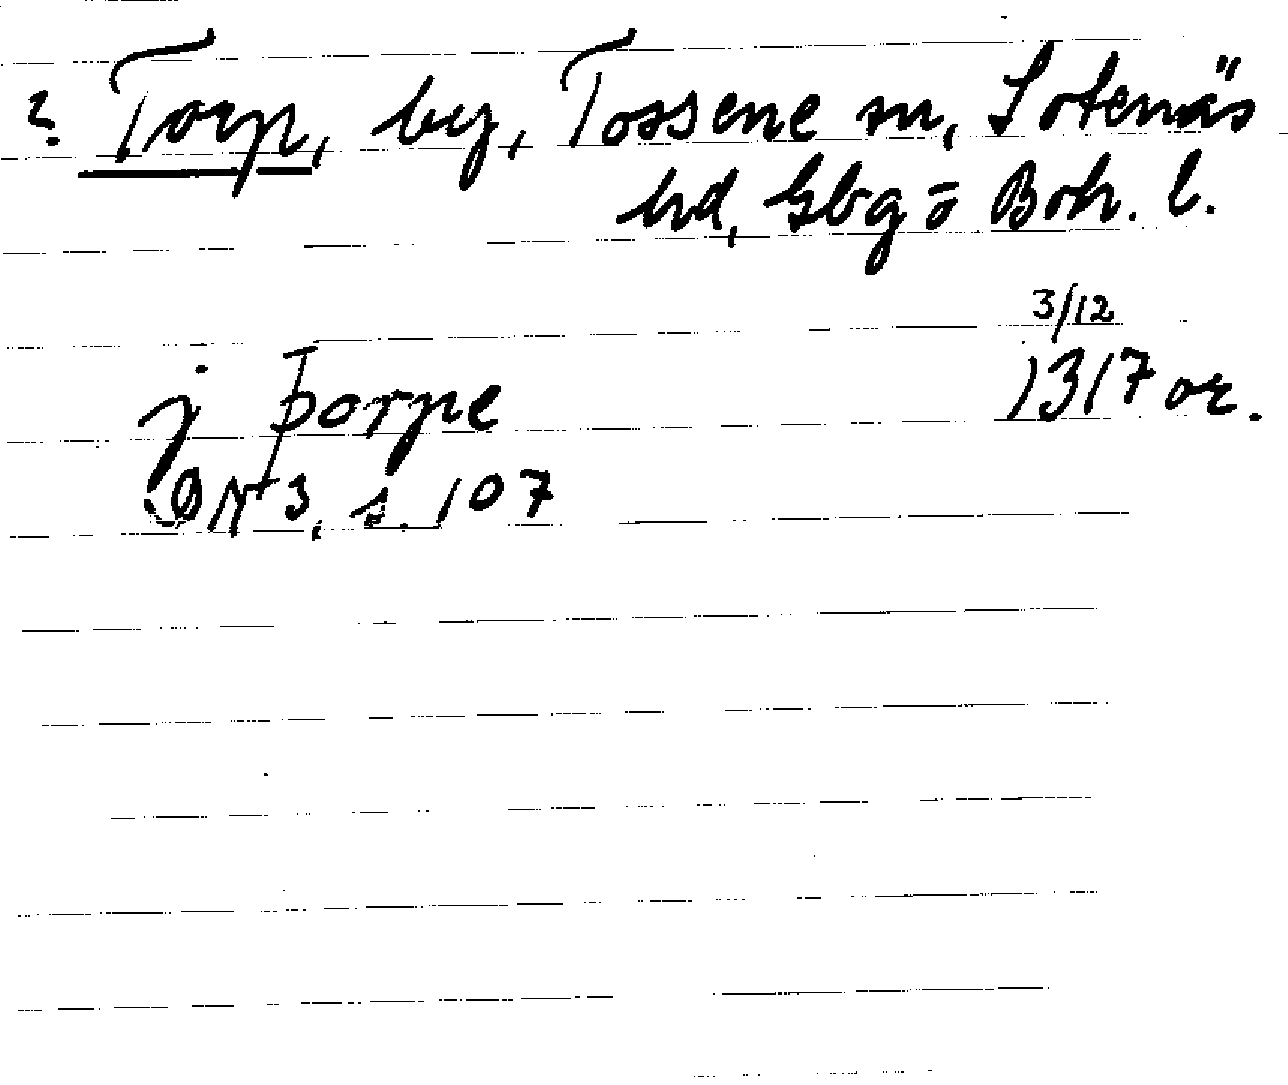 ? Torp, by, Tossene sn, Sotenäs
hd, Gbg o Boh. l.
3/12
j þorpe 1317 or.
DN 3, s. 107